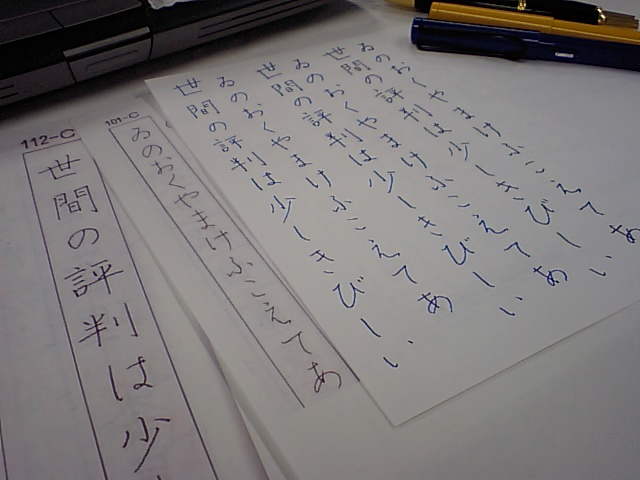 ゐのおくやまけふこえてあ
世間の評判は少しきびしい
ゐのおくやまけふこえてあ
世間の評判は少しきびしい
ゐのおくやまけふこえてあ
世間の評判は少しきびしい
101-C
ゐのおくやまけふこえてあ
112-C
世間の評判は少